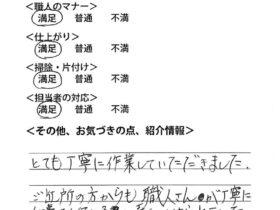 <職人のマナー>
満足 普通 不満
<仕上がり>
満足 普通 不満
<掃除・片付け>
満足 普通 不満
<担当者の対応>
満足 普通 不満
<その他、お気づきの点、紹介情報>
とても丁寧に作業していただきました。
ご近所の方からも職人さんが丁寧に